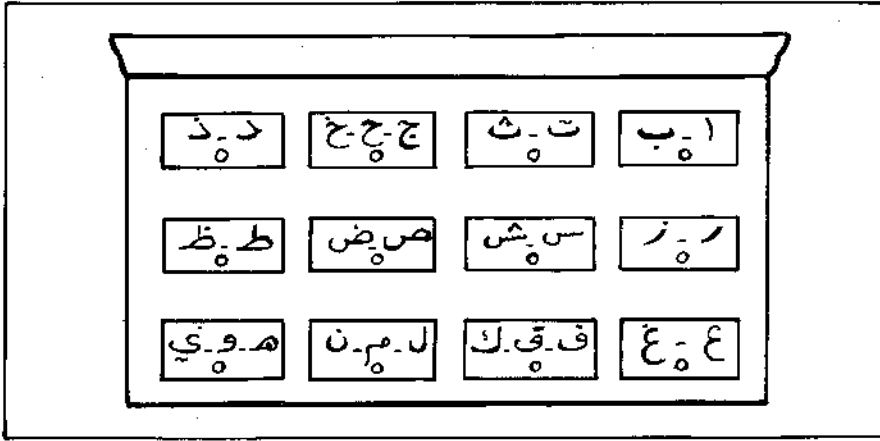 ا - ب ت - ث ج - ح - خ د - ذ
ر - ز س - ش ص - ض ط - ظ
ع - غ ف - ق - ك ل - م - ن هـ - و - ي